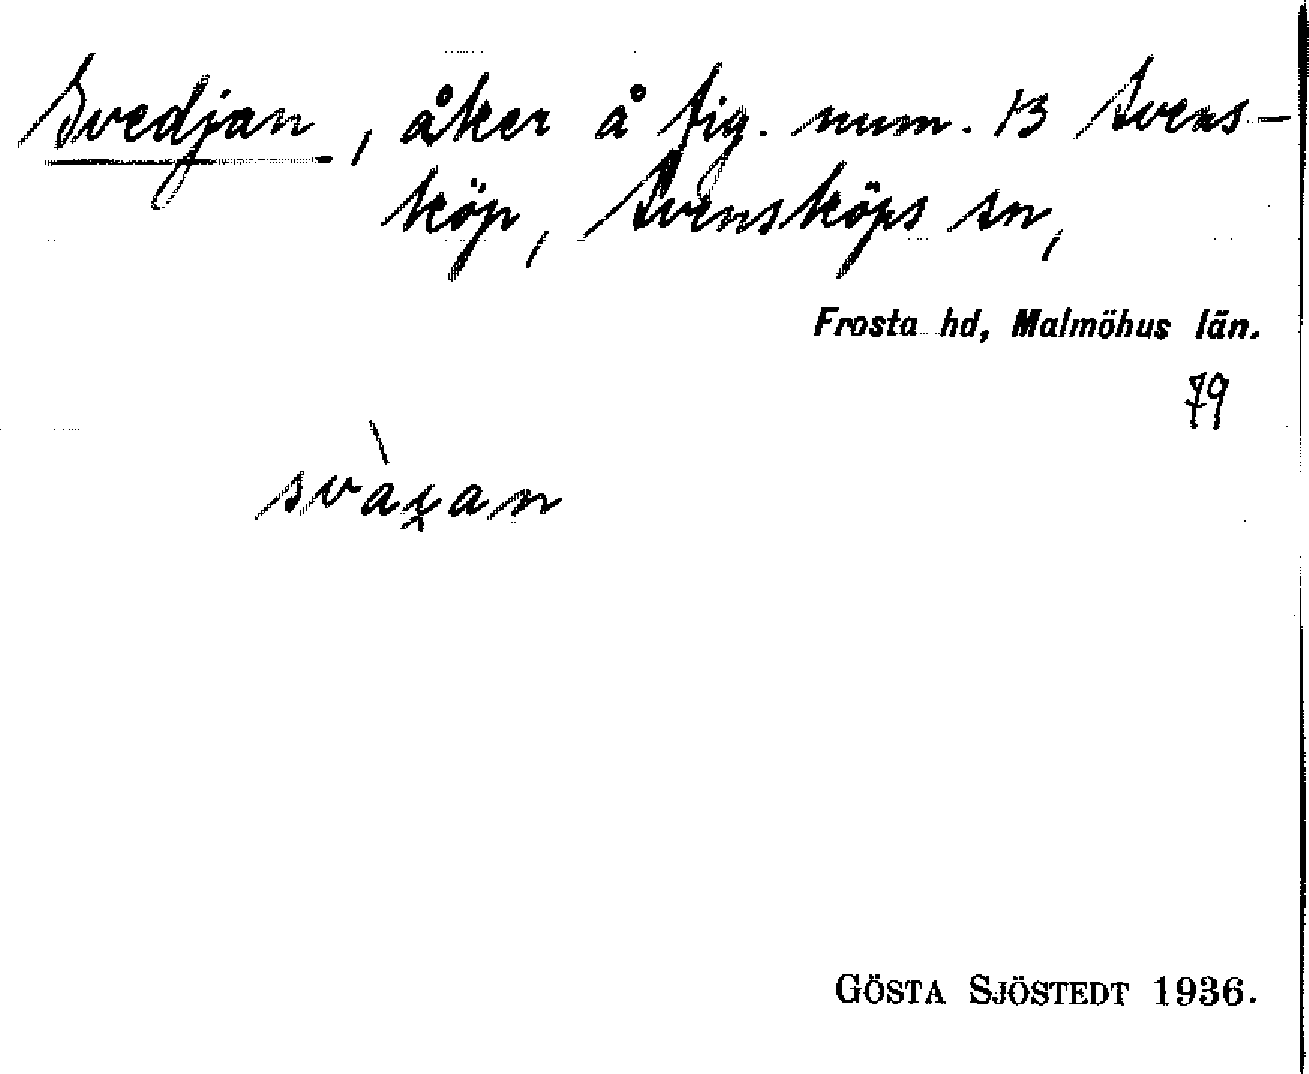 Svedjan, åker å fig. num. 13 Svens-
köp, Svensköps sn,
Frosta hd, Malmöhus län.
79
GÖSTA SJÖSTEDT 1936.